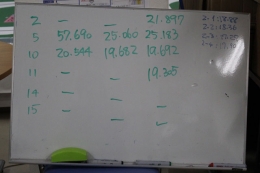 2 - - 21.897
5 57.690 25.060 25.183
10 20.544 19.682 19.692
11 - - 19.305
14 - - -
15 - - -